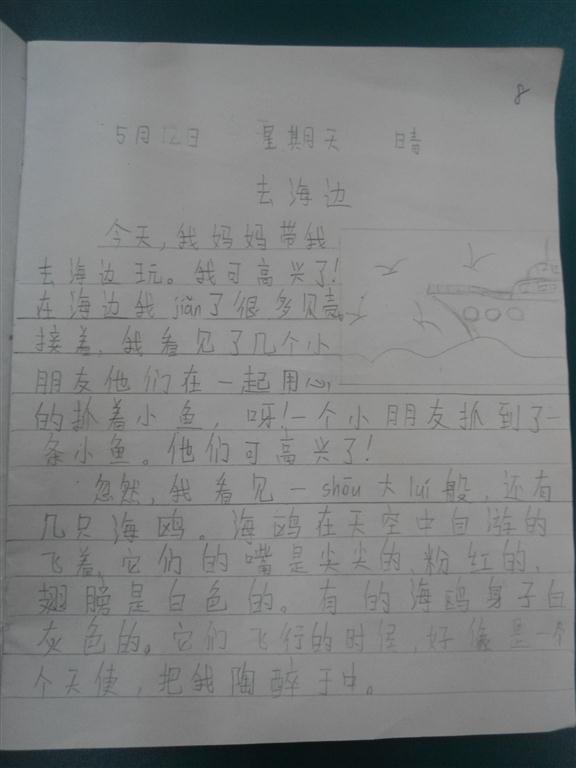 8
5月12日 星期天 晴
去海边
今天,我妈妈带我
去海边玩。我可高兴了!
在海边我jiǎn了很多贝壳。
接着,我看见了几个小
朋友他们在一起用心
的抓着小鱼,呀!一个小朋友抓到了一
条小鱼。他们可高兴了!
忽然,我看见一shōu大luí般,还有
几只海鸥。海鸥在天空中自游的
飞着,它们的嘴是尖尖的、粉红的、
翅膀是白色的。有的海鸥身子白
灰色的。它们飞行的时候,好像是一个
个天使,把我陶醉于中。